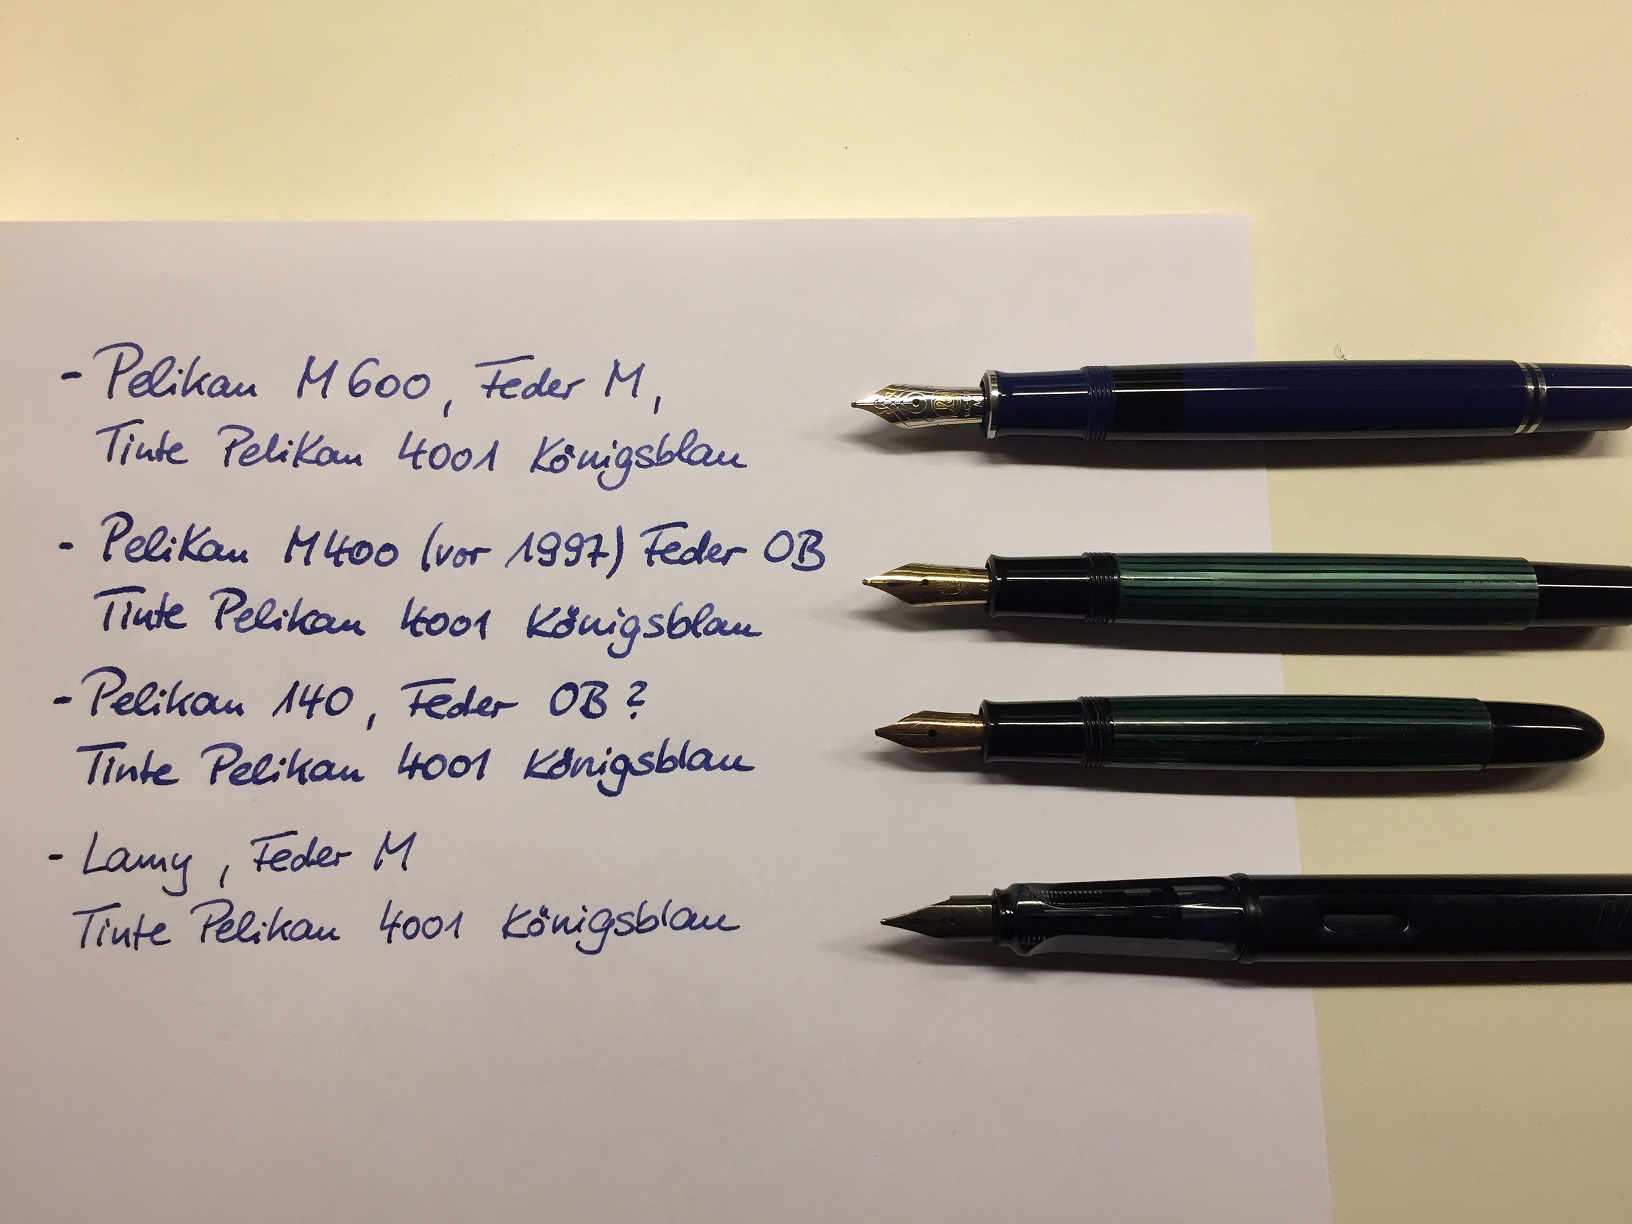 - Pelikan M600, Feder M,
Tinte Pelikan 4001 Königsblau
- Pelikan M400 (vor 1997) Feder OB
Tinte Pelikan 4001 Königsblau
- Pelikan 140, Feder OB?
Tinte Pelikan 4001 Königsblau
- Lamy, Feder M
Tinte Pelikan 4001 Königsblau